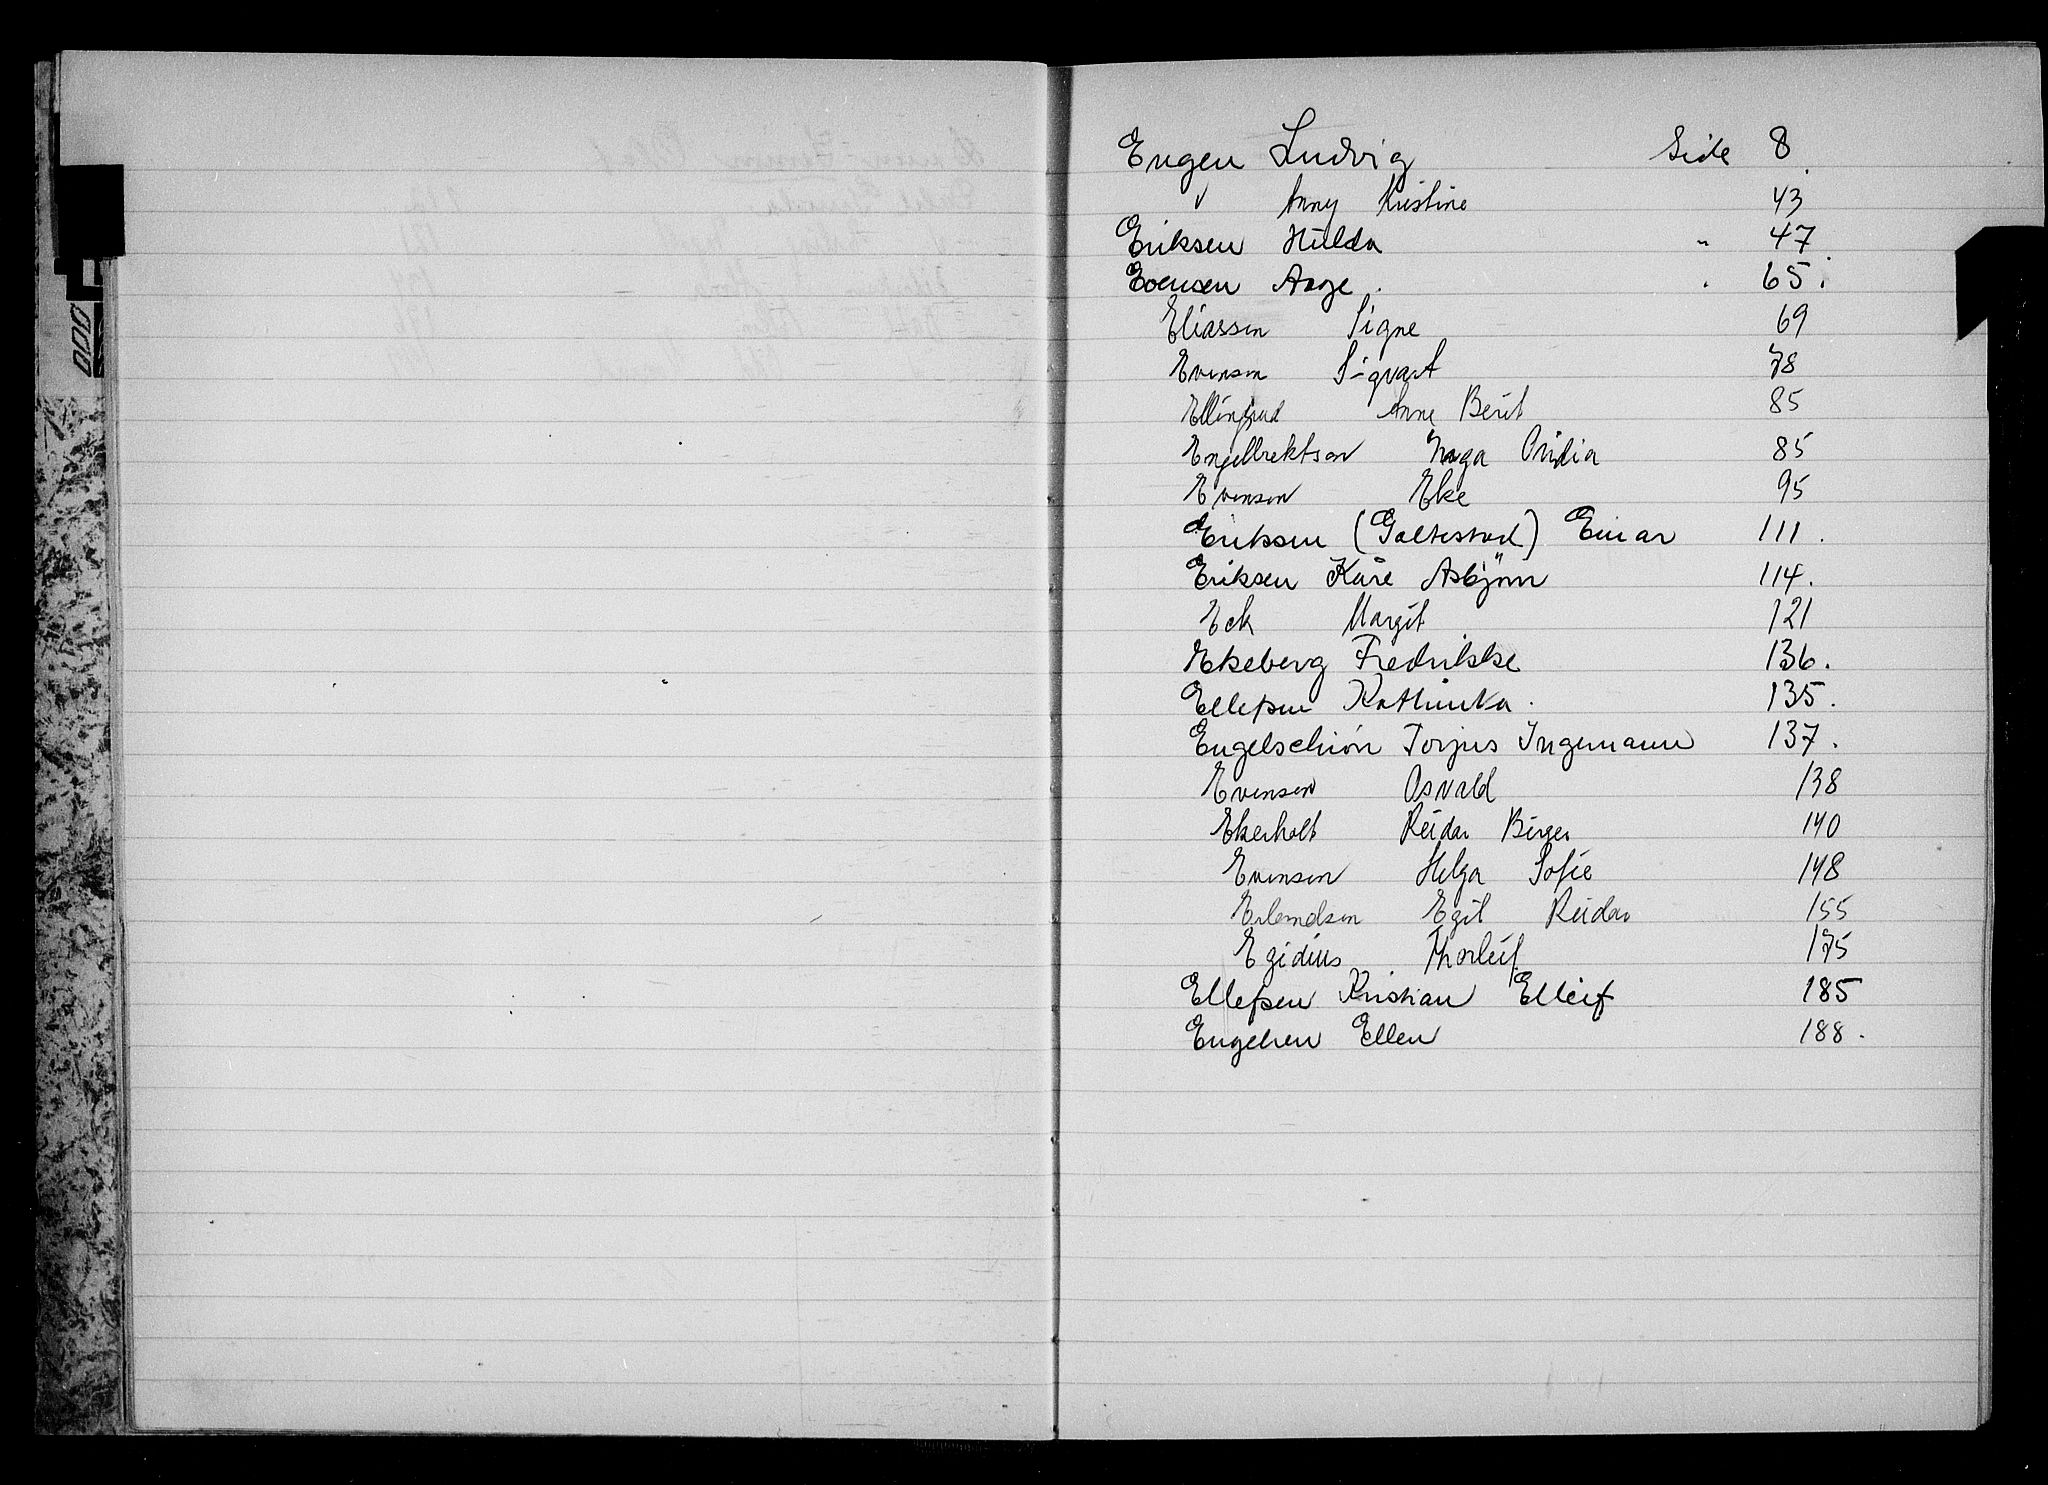 Engen Ludvig Side 8.
" Anny Kristine 43
Eriksen Hilda " 47
Evensen Aage . " 65.
Eliassen Signe 69
Evensen Sigvart 78
Ellingrud Anne Berit 85
Engelbrektsen Inga Ovidia 85
Evensen Eke 95
Eriksen (Galtestad) Einar 111.
Eriksen Kåre Asbjörn 114.
Eck Margit 121
Ekeberg Fredrikke 136.
Ellefsen Kathinka. 135.
Engelschiön Torjus Ingemann 137.
Evensen Osvald 138
Ekerholt Reidar Birger 140
Evensen Helga Sofie 148
Erlandsen Egil Reidar 155
Egidius Thorleif 175
Ellefsen Kristian Elleif 185
Engelsen Ellen 188.